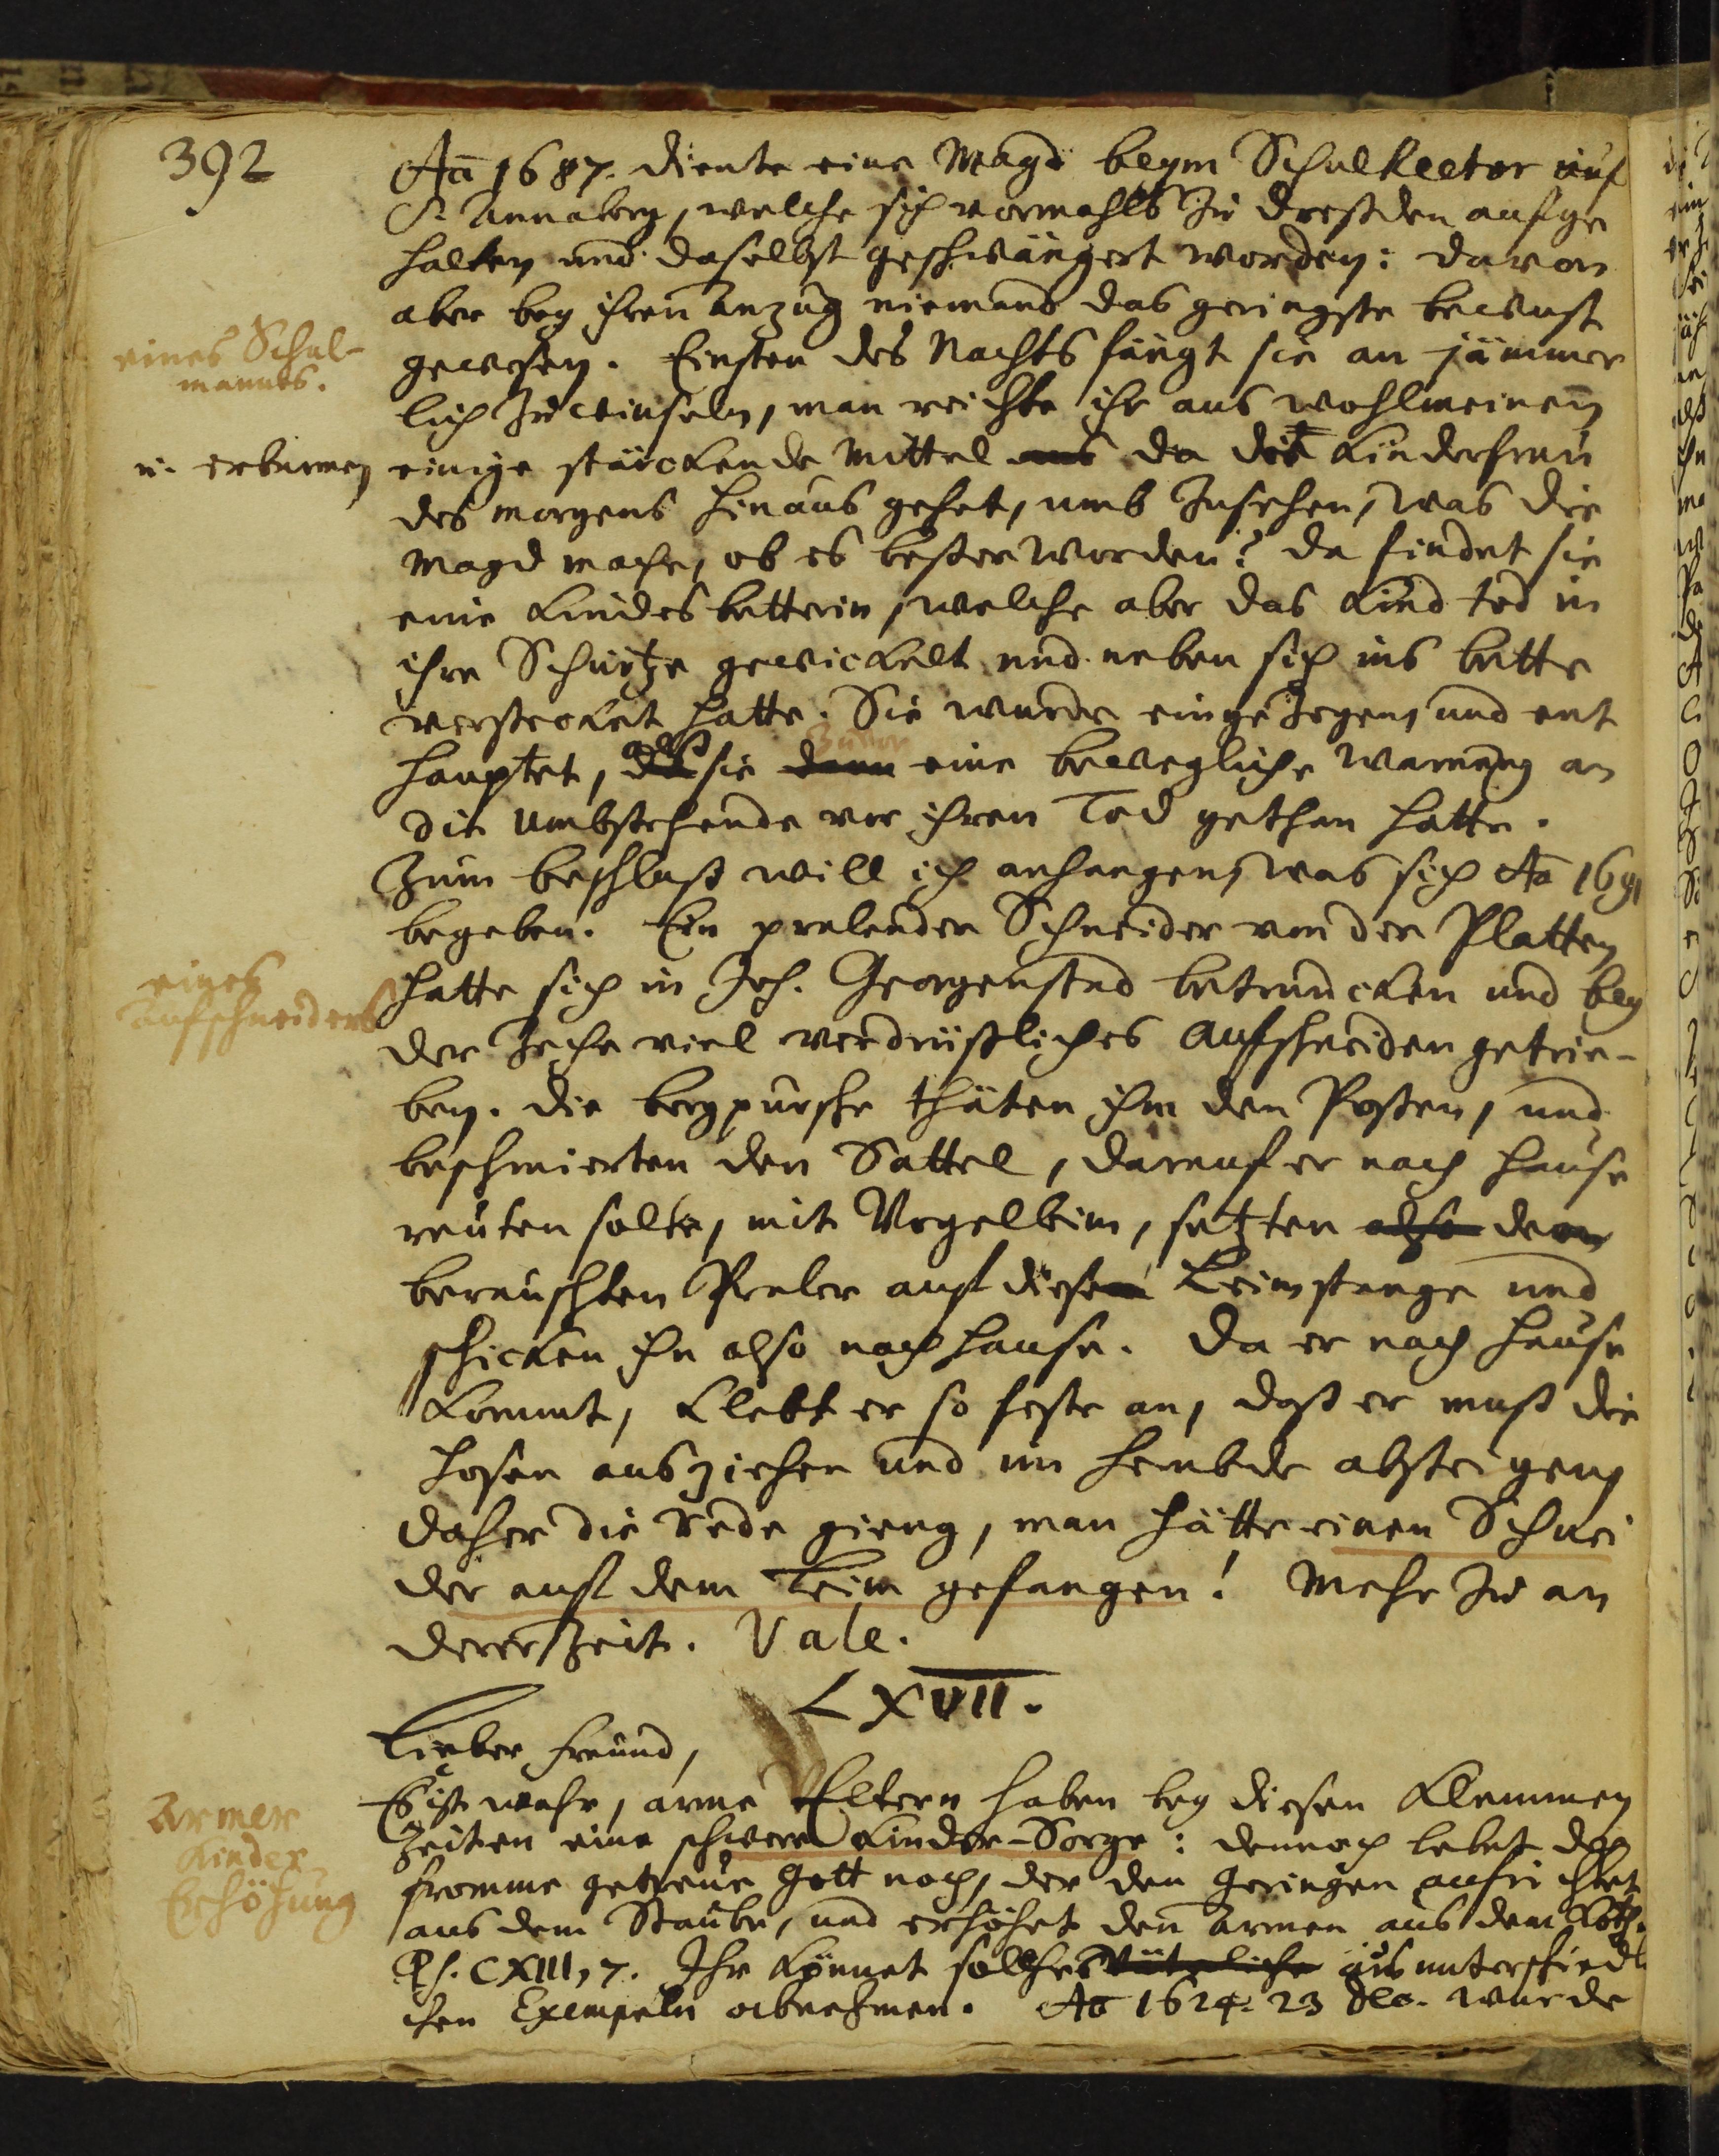 392
Aō 1687. diente eine Magd beym Schul Rector auf
S. Annaberg, welche sich vormahls zu Dreßden aufge
halten und daselbst geschwängert worden: davon
aber bey ihren Anzug niemand das geringste bewust
eines Schul-
mannes.
gewesen. Einsten des Nachts fängt sie an jämmer
lich zu winseln, man reichte ihr aus wohlmeinen
u. erbarmen
einige stärckende Mittel aus da die Kinderfrau
des morgens hinaus gehet, umb zusehen, was die
Magd mache, ob es beßer worden? da findet sie
eine Kindesbetterin, welche aber das Kind tod in
ihre Schürtze gewickelt und neben sich ins bette
verstecket hatte. Sie wurde eingezogen, und ent
hauptet, als sie zuvor eine bewegliche Warnung an
die Umbstehende vor ihren Tod gethan hatte.
Zum beschluß will ich anhangen, was sich Aō 1691
begeben. Ein pralender Schneider von der Platten
eines
Aufschneiders
hatte sich in Joh. Georgenstad betruncken und bey
der Zeche viel verdrüßliches Aufschneiden getrie-
ben. Die bergpursche thäten ihm den Poßen, und
beschmierten den Sattel, darauf er nach Hause
reuten solte, mit Vogelleim, setzten also den
berauschten Praler auf diese Leimstange und
schicken ihn also nach Hause. Da er nach Hause
kommt, klebt er so feste an, daß er muß die
Hosen ausziehen und im Hembde absteigen,
daher die Rede gieng, man hätte einen Schnei
der auf dem Leim gefangen! Mehr zu an
derer Zeit. Vale.
LXVII.
Lieber Freund,
Armer
Kinder
Erhöhung
Es ist wahr, arme Eltern haben bey diesen Klemmen
Zeiten eine schwere Kinder-Sorge: dennoch lebet der
fromme getreue Gott noch, der den Geringen aufrichtet
aus dem Staube, und erhöhet den Armen aus dem Koth.
Ps. CXIII, 7. Ihr könnet solches Väterliche aus unterschiedl
chen Exempeln abnehmen. Aō 1624. 23 Dec. wurde